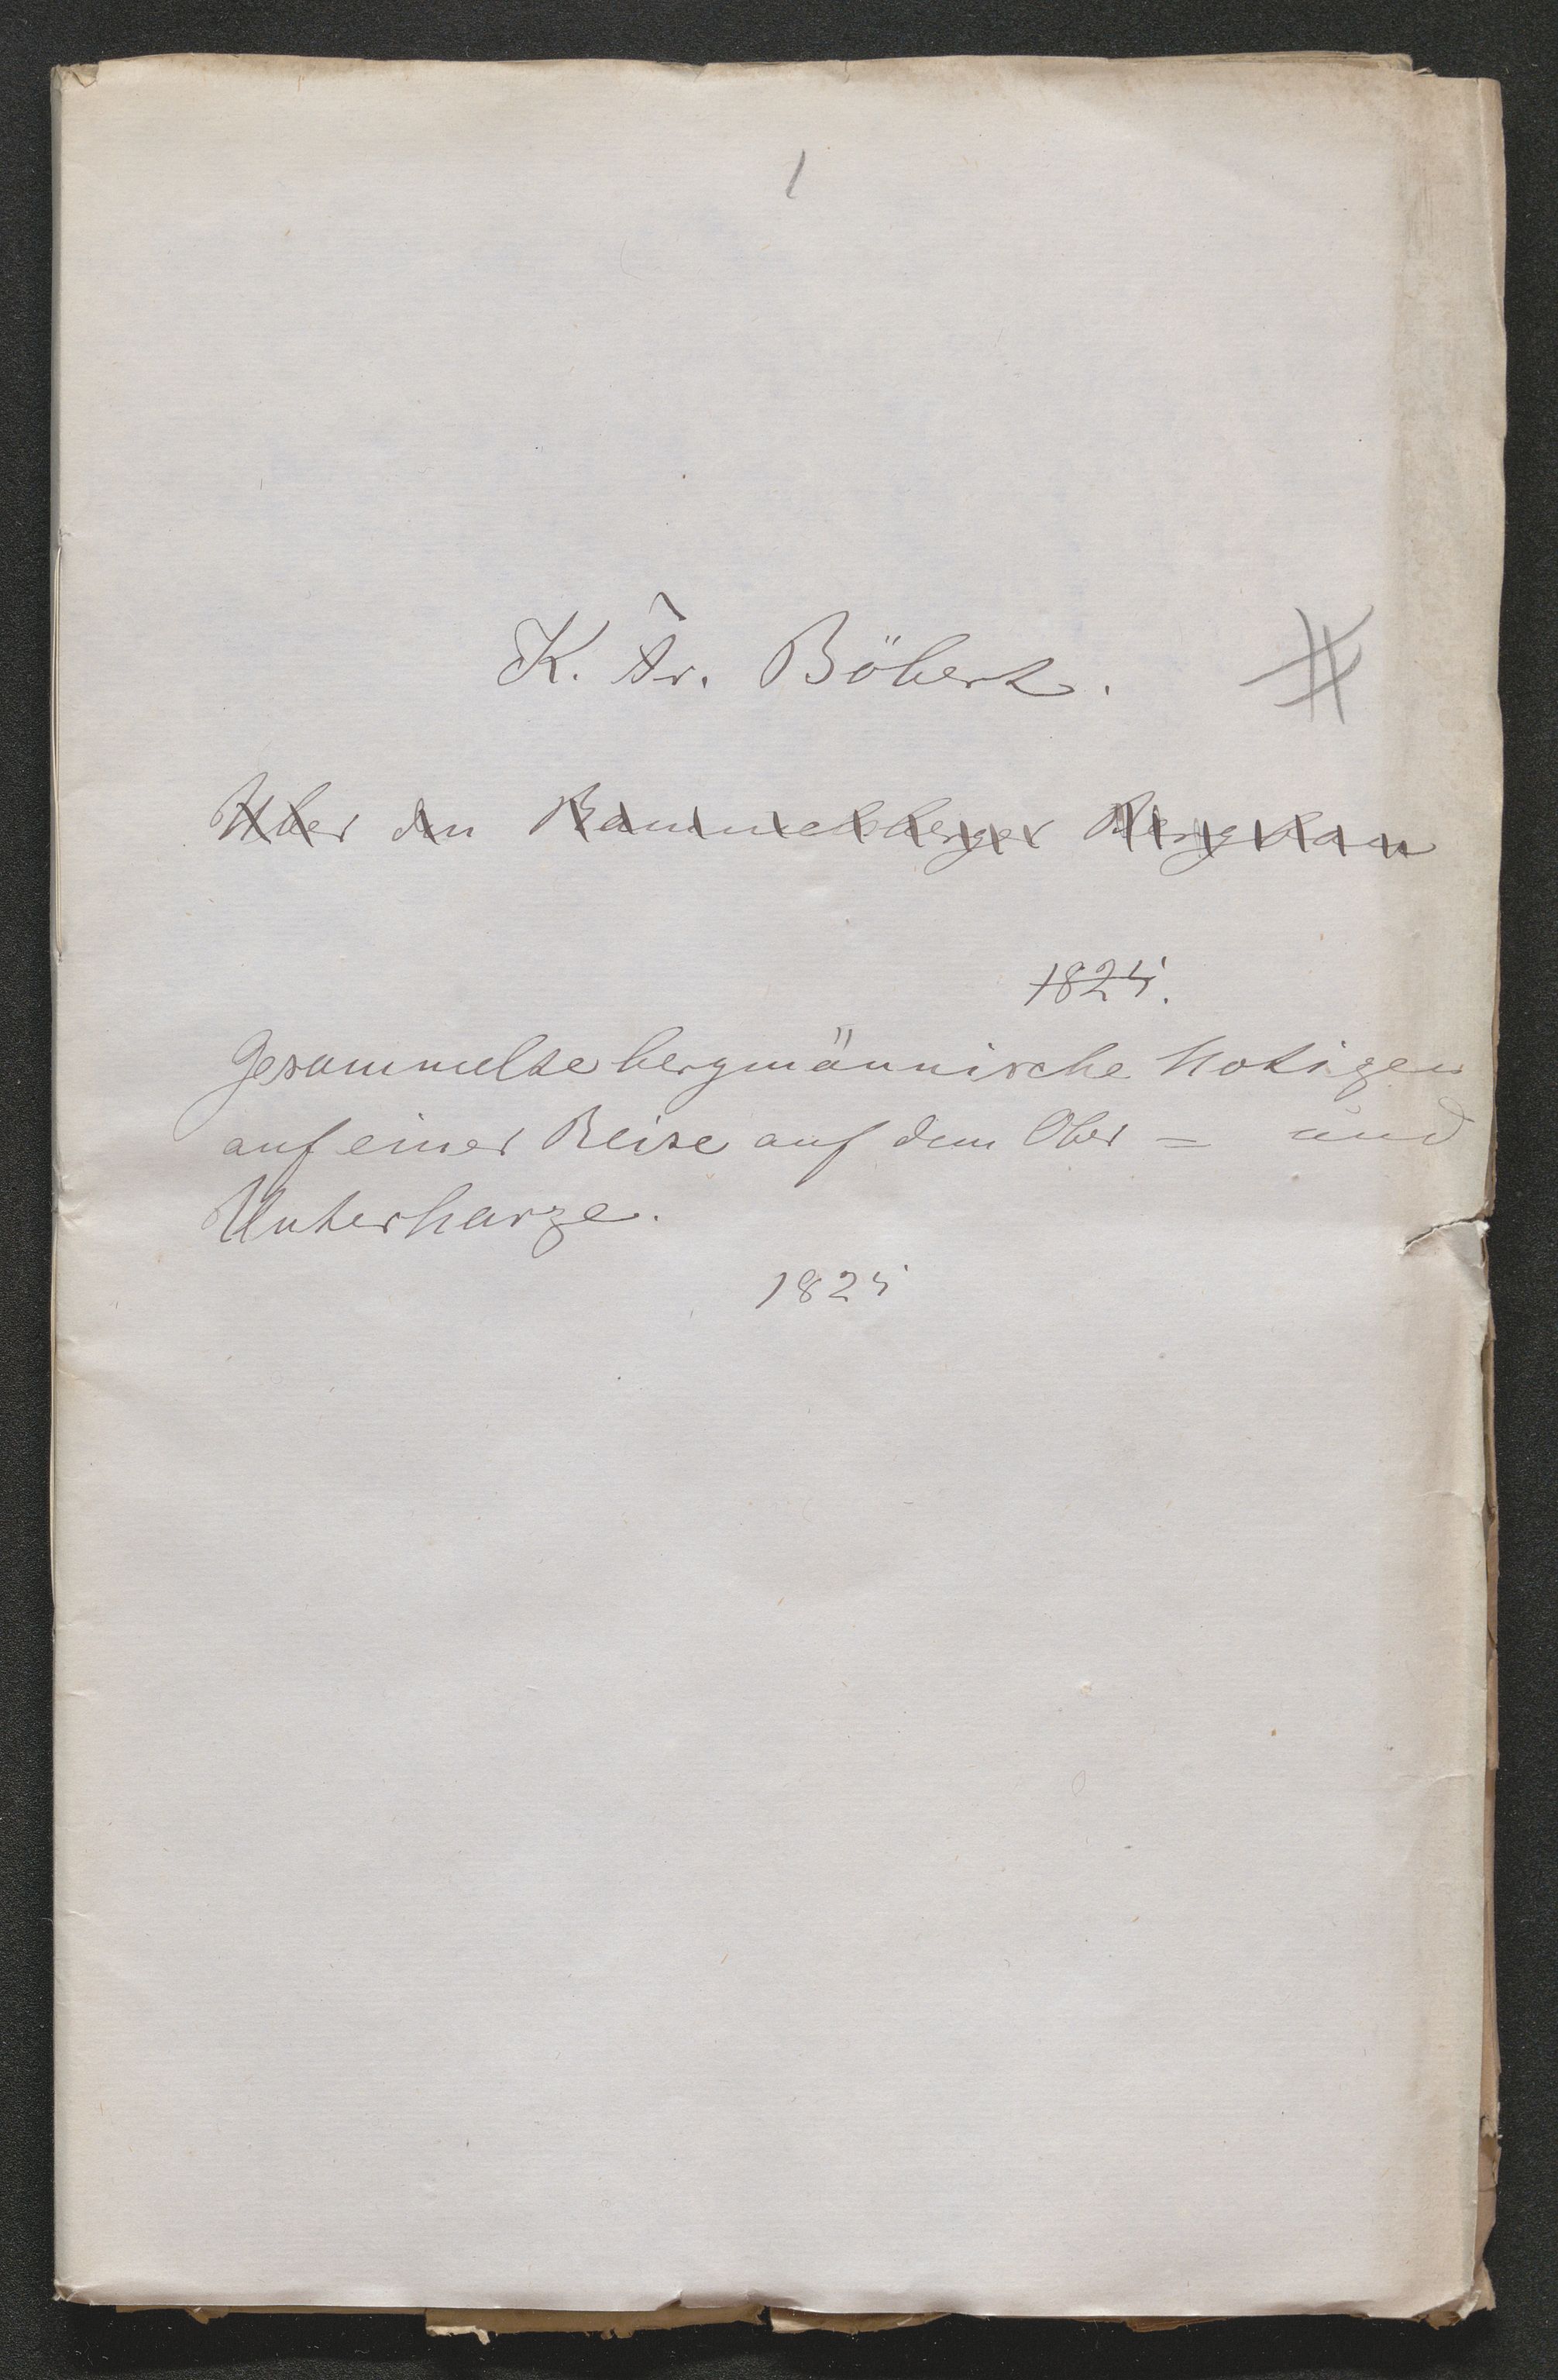 1
K. Fr. Böbert. #
Über den Rammelsberger Bergbau
1825.
Gesammelte bergmännische Notizen
auf einer Reise auf dem Ober = und
Unterharze.
1825